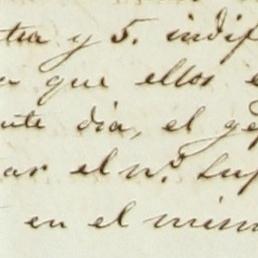 tra y 5. indif
que ellos e
ente dia, el gef
ar el n.º Sup
en el mism